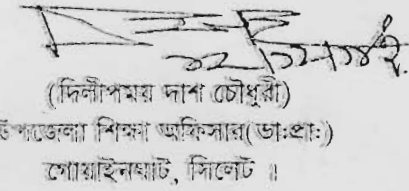 (দিলীপময় দাশ চৌধুরী)
উপজেলা শিক্ষা অফিসার(ভাঃপ্রাঃ)
গোয়াইনঘাট, সিলেট ॥